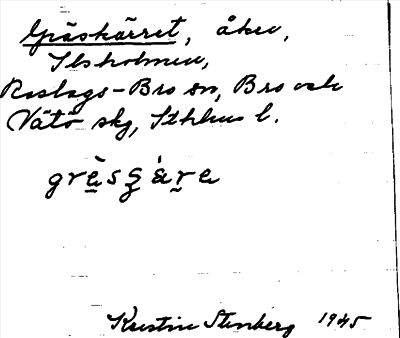 Gräskärret, åker,
Ilsholmen,
Roslags-Bro sn, Bro och
Vätö skg, Sthlms l.
grè̱sʒ̀ä̱ṟe
Kerstin Stenberg 1945